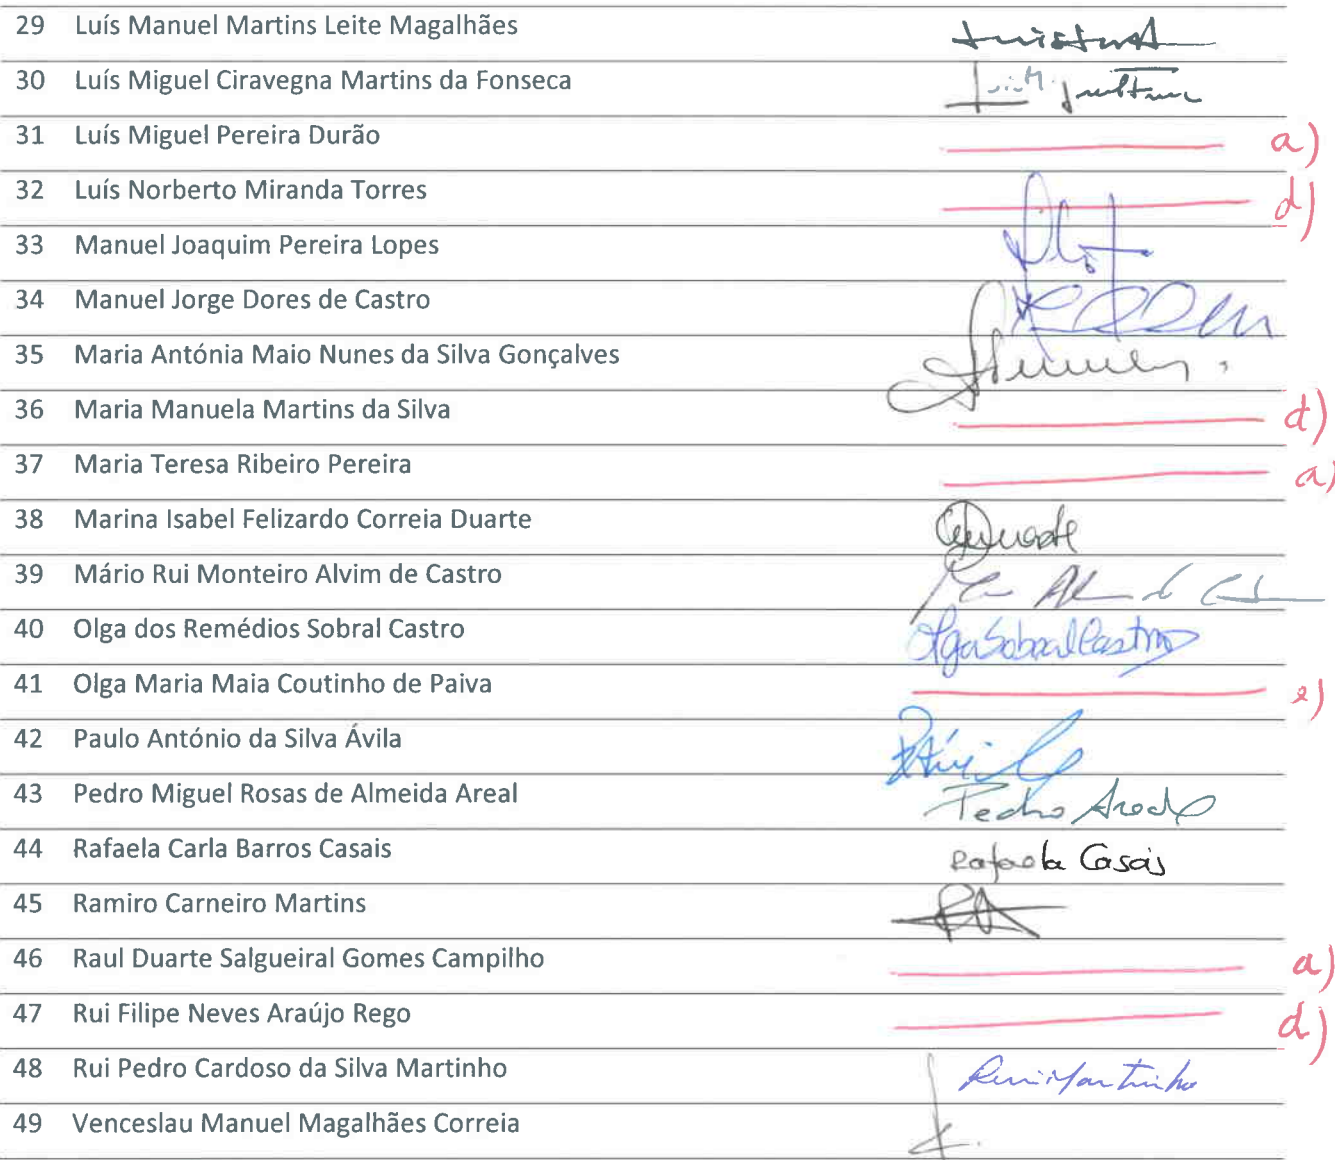 29 Luís Manuel Martins Leite Magalhães
30 Luís Miguel Ciravegna Martins da Fonseca
31 Luís Miguel Pereira Durão a)
32 Luís Norberto Miranda Torres d)
33 Manuel Joaquim Pereira Lopes
34 Manuel Jorge Dores de Castro
35 Maria Antónia Maio Nunes da Silva Gonçalves
36 Maria Manuela Martins da Silva d)
37 Maria Teresa Ribeiro Pereira a)
38 Marina Isabel Felizardo Correia Duarte
39 Mário Rui Monteiro Alvim de Castro
40 Olga dos Remédios Sobral Castro Olga Sobral Castro
41 Olga Maria Maia Coutinho de Paiva e)
42 Paulo António da Silva Ávila
43 Pedro Miguel Rosas de Almeida Areal Pedro Areal
44 Rafaela Carla Barros Casais Rafaela Casais
45 Ramiro Carneiro Martins
46 Raul Duarte Salgueiral Gomes Campilho a)
47 Rui Filipe Neves Araújo Rego d)
48 Rui Pedro Cardoso da Silva Martinho Rui Martinho
49 Venceslau Manuel Magalhães Correia